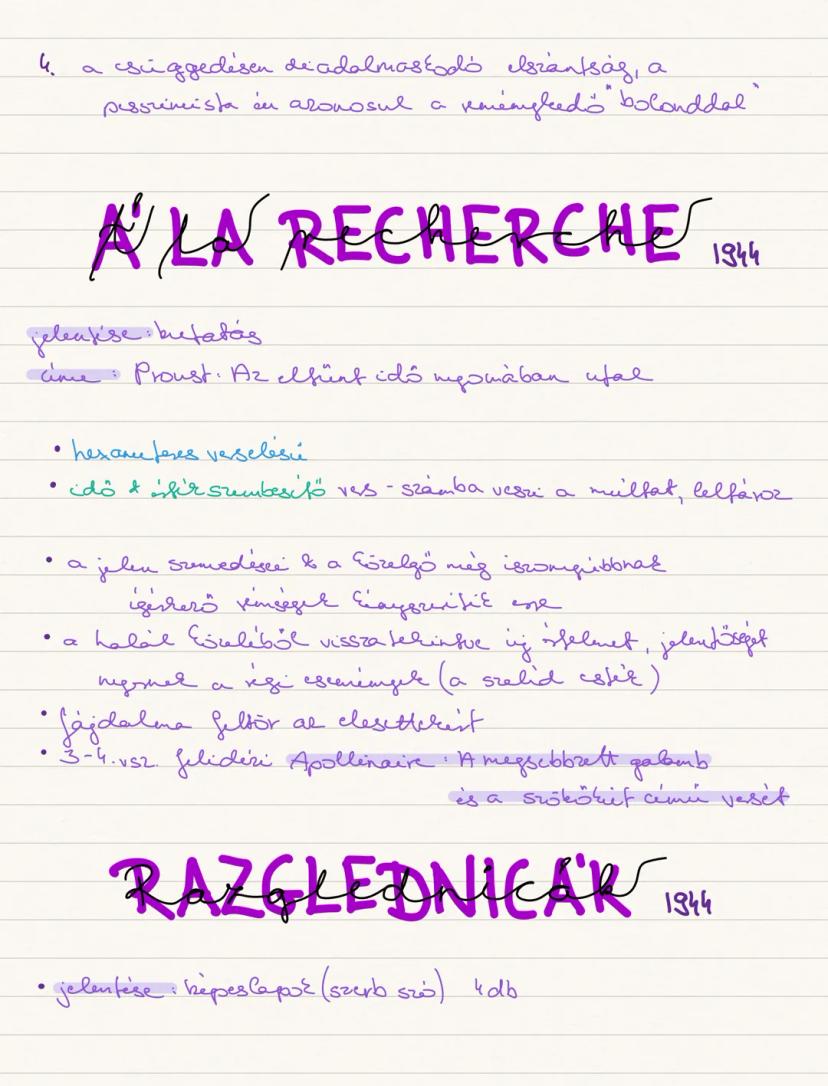 4. a csüggedésen diadalmaskodó elszántság, a
pesszimista én azonosul a reménykedő "bolonddal"
Á LA RECHERCHE 1944
jelentése: kutatás
címe: Proust: Az eltűnt idő nyomában utal
• hexameteres verselésű
• idő + értékszembesítő vers - számba veszi a múltat, leltároz
• a jelen szenvedései & a közelgő még iszonyúbbnak
ígérkező rémségek kényszerítik erre
• a halál közeléből visszatekintve új értelmet, jelentőséget
nyernek a régi események (a szelíd esték)
• fájdalma feltör az elesettekért
• 3-4. vsz. felidézi Apollinaire: A megsebbzett galamb
és a szökőkút című versét
RAZGLEDNICÁK 1944
• jelentése: képeslapok (szerb szó) 4db